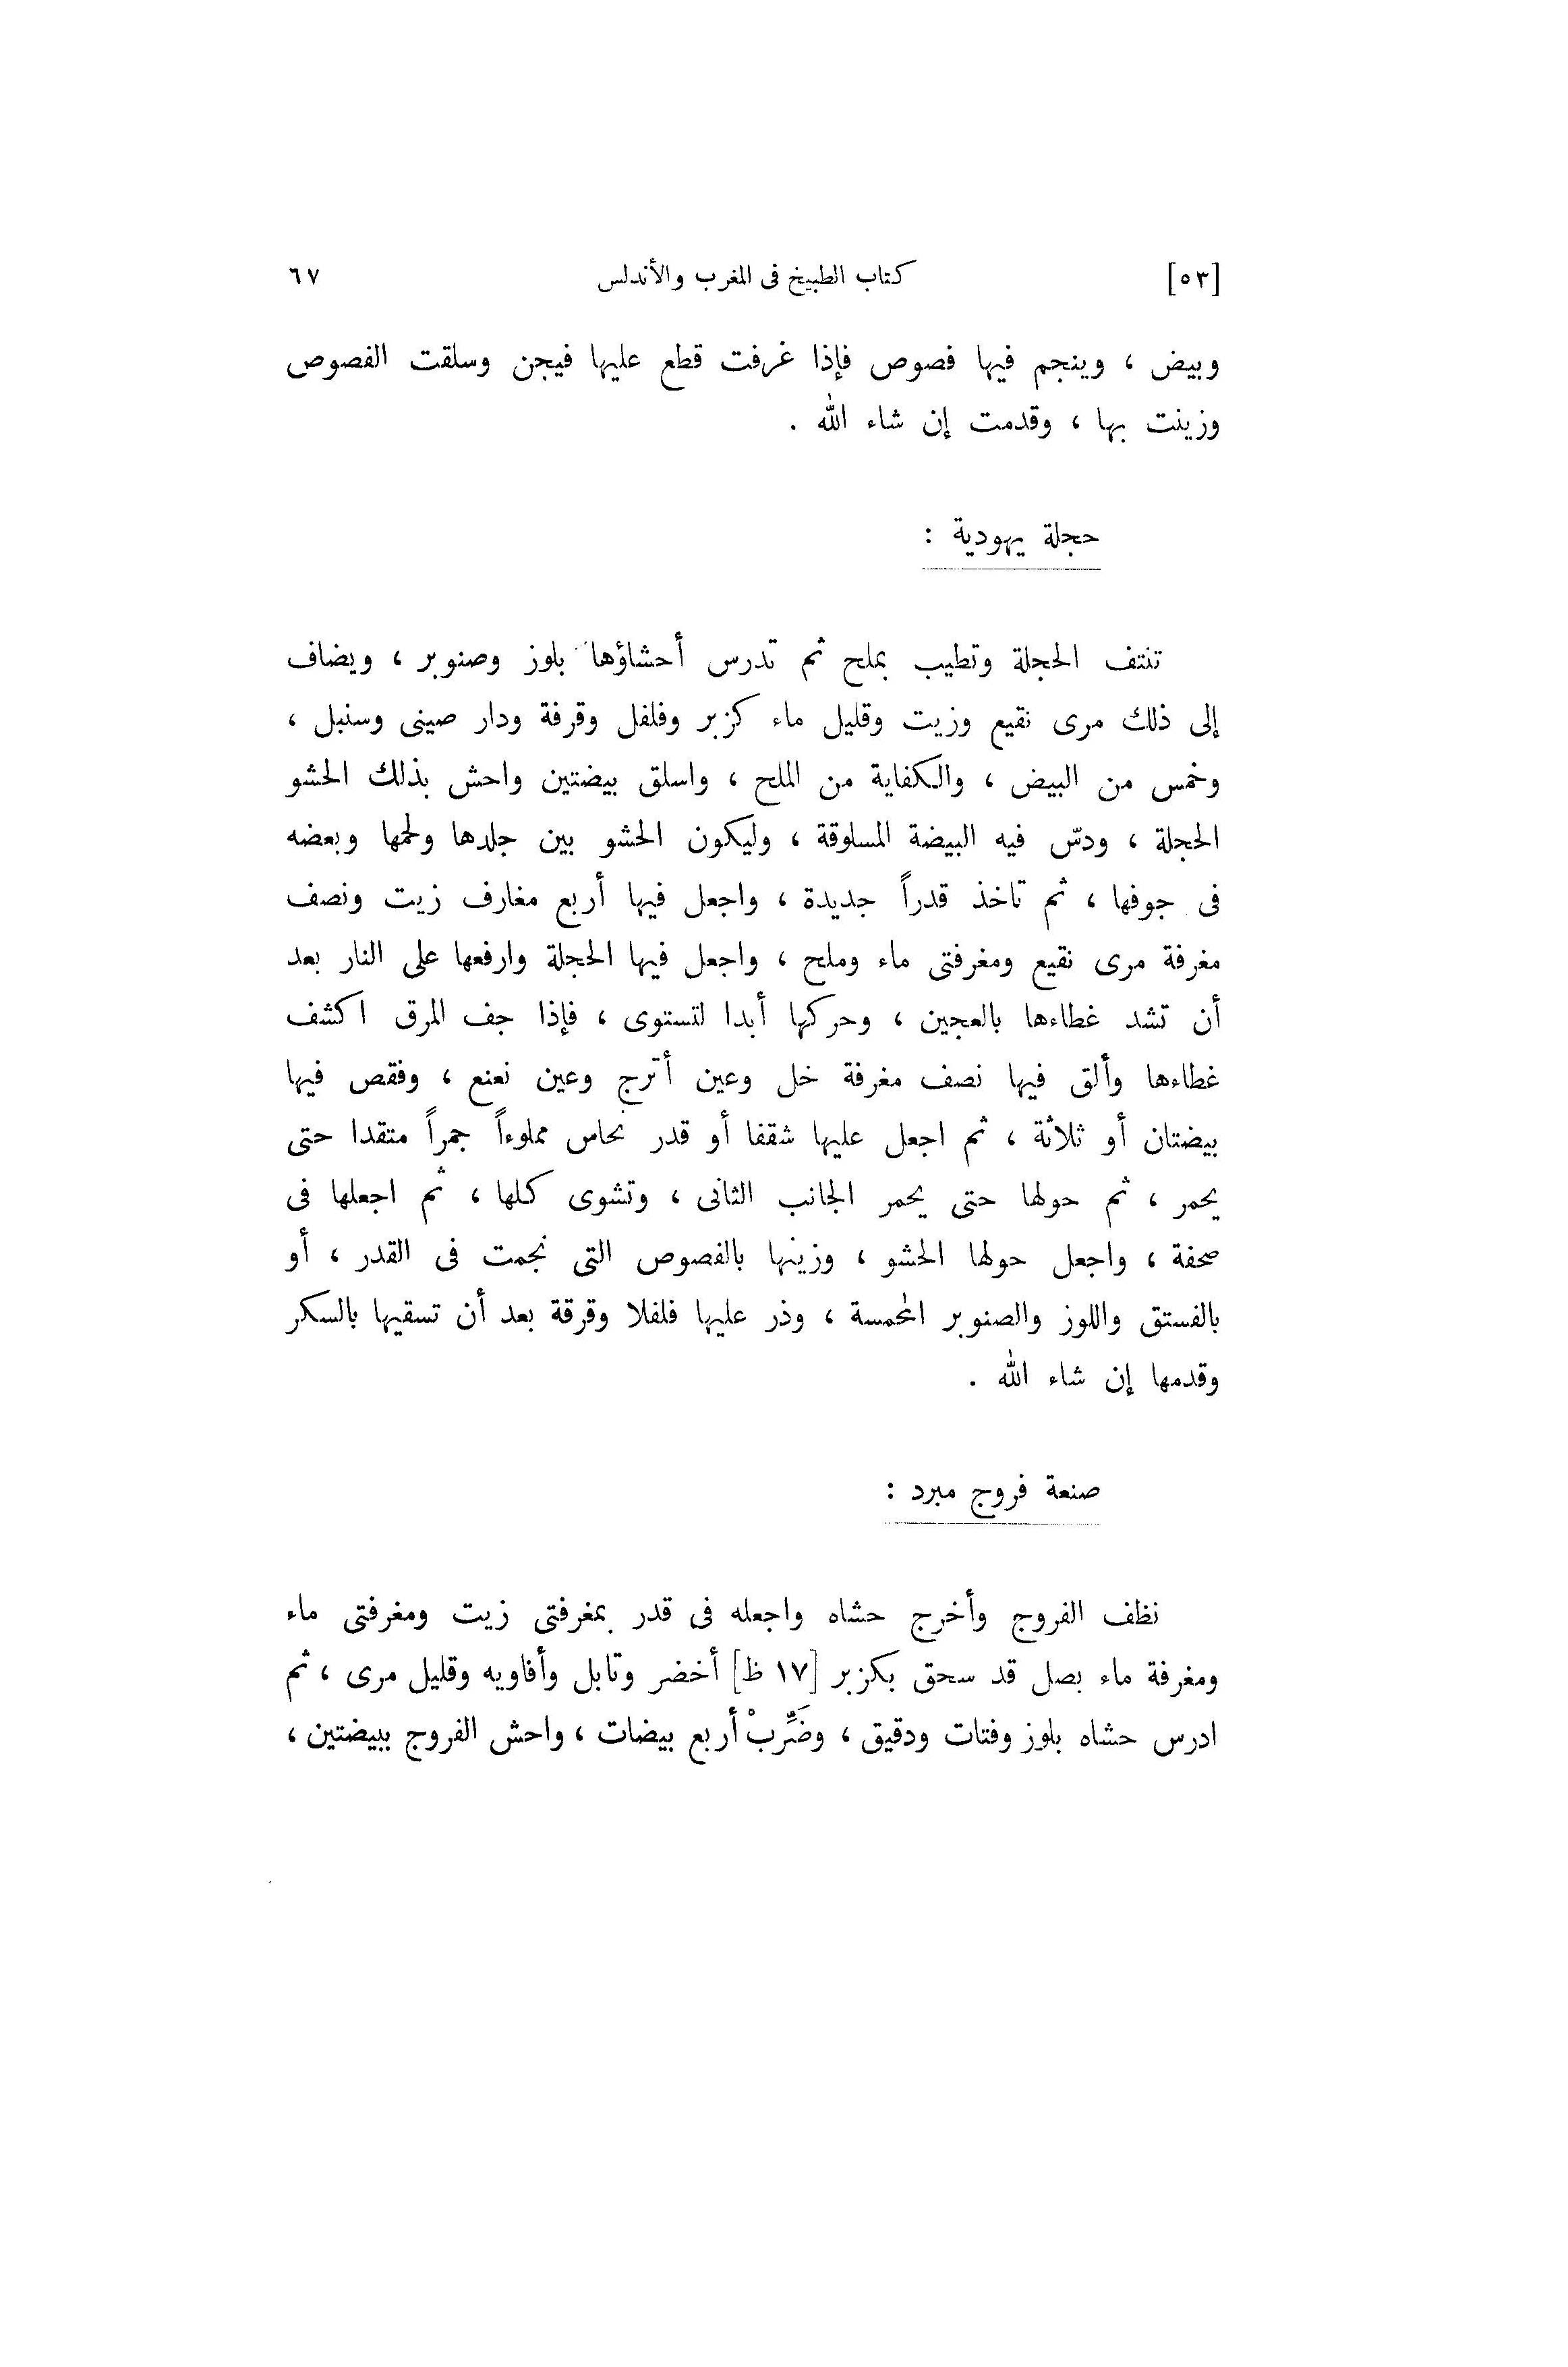 [٥٣] كتاب الطبيخ فى المغرب والأندلس ٦٧
وبيض ، وينجم فيها فصوص فإذا غرفت قطع عليها فيجن وسلقت الفصوص
وزينت بها ، وقدمت إن شاء الله .
حجلة يهودية :
تنتف الحجلة وتطيب بملح ثم تدرس أحشاؤها بلوز وصنوبر ، ويضاف
إلى ذلك مرى نقيع وزيت وقليل ماء كزبر وفلفل وقرفة ودار صينى وسنبل ،
وخمس من البيض ، والكفاية من الملح ، واسلق بيضتين واحش بذلك الحشو
الحجلة ، ودسّ فيه البيضة المسلوقة ، وليكون الحشو بين جلدها ولحمها وبعضه
فى جوفها ، ثم تاخذ قدراً جديدة ، واجعل فيها أربع مغارف زيت ونصف
مغرفة مرى نقيع ومغرفتى ماء وملح ، واجعل فيها الحجلة وارفعها على النار بعد
أن تشد غطاءها بالعجين ، وحركها أبدا لتستوى ، فإذا جف المرق اكشف
غطاءها وألق فيها نصف مغرفة خل وعين أترج وعين نعنع ، وفقص فيها
بيضتان أو ثلاثة ، ثم اجعل عليها شقفا أو قدر نحاس مملوءاً جمراً متقدا حتى
يحمر ، ثم حولها حتى يحمر الجانب الثانى ، وتشوى كلها ، ثم اجعلها فى
صحفة ، واجعل حولها الحشو ، وزينها بالفصوص التى نجمت فى القدر ، أو
بالفستق واللوز والصنوبر المحمسة ، وذر عليها فلفلا وقرقة بعد أن تسقيها بالسكر
وقدمها إن شاء الله .
صنعة فروج مبرد :
نظف الفروج وأخرج حشاه واجعله فى قدر بمغرفتى زيت ومغرفتى ماء
ومغرفة ماء بصل قد سحق بكزبر [١٧ ظ] أخضر وتابل وأفاويه وقليل مرى ، ثم
ادرس حشاه بلوز وفتات ودقيق ، وضَرِّبْ أربع بيضات ، واحش الفروج ببيضتين ،